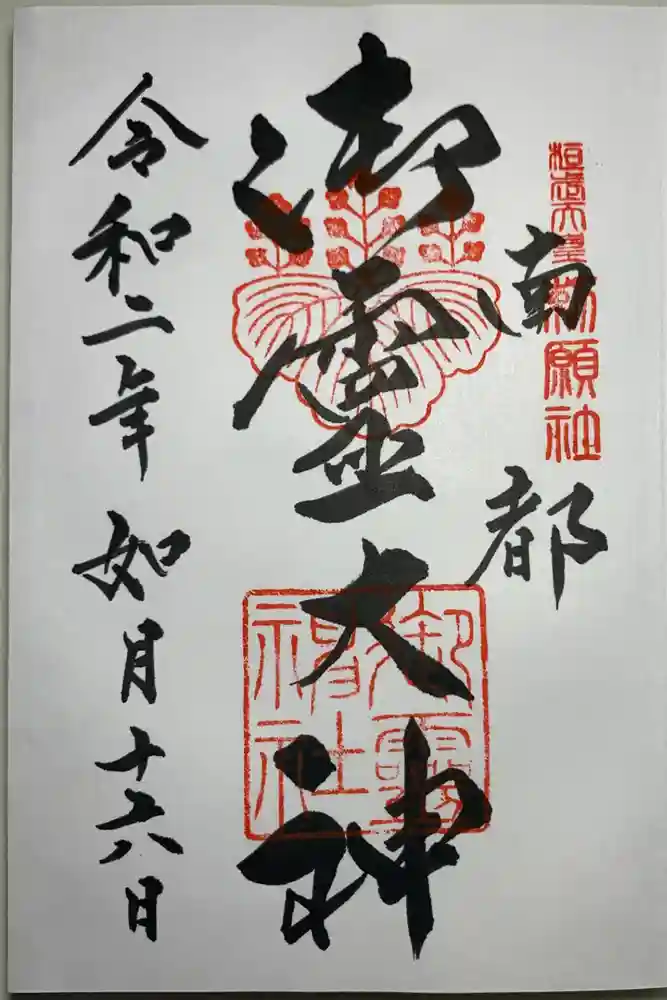 桓武天皇勅願社
南都
御霊大神
御霊
神社
令和二年如月十六日